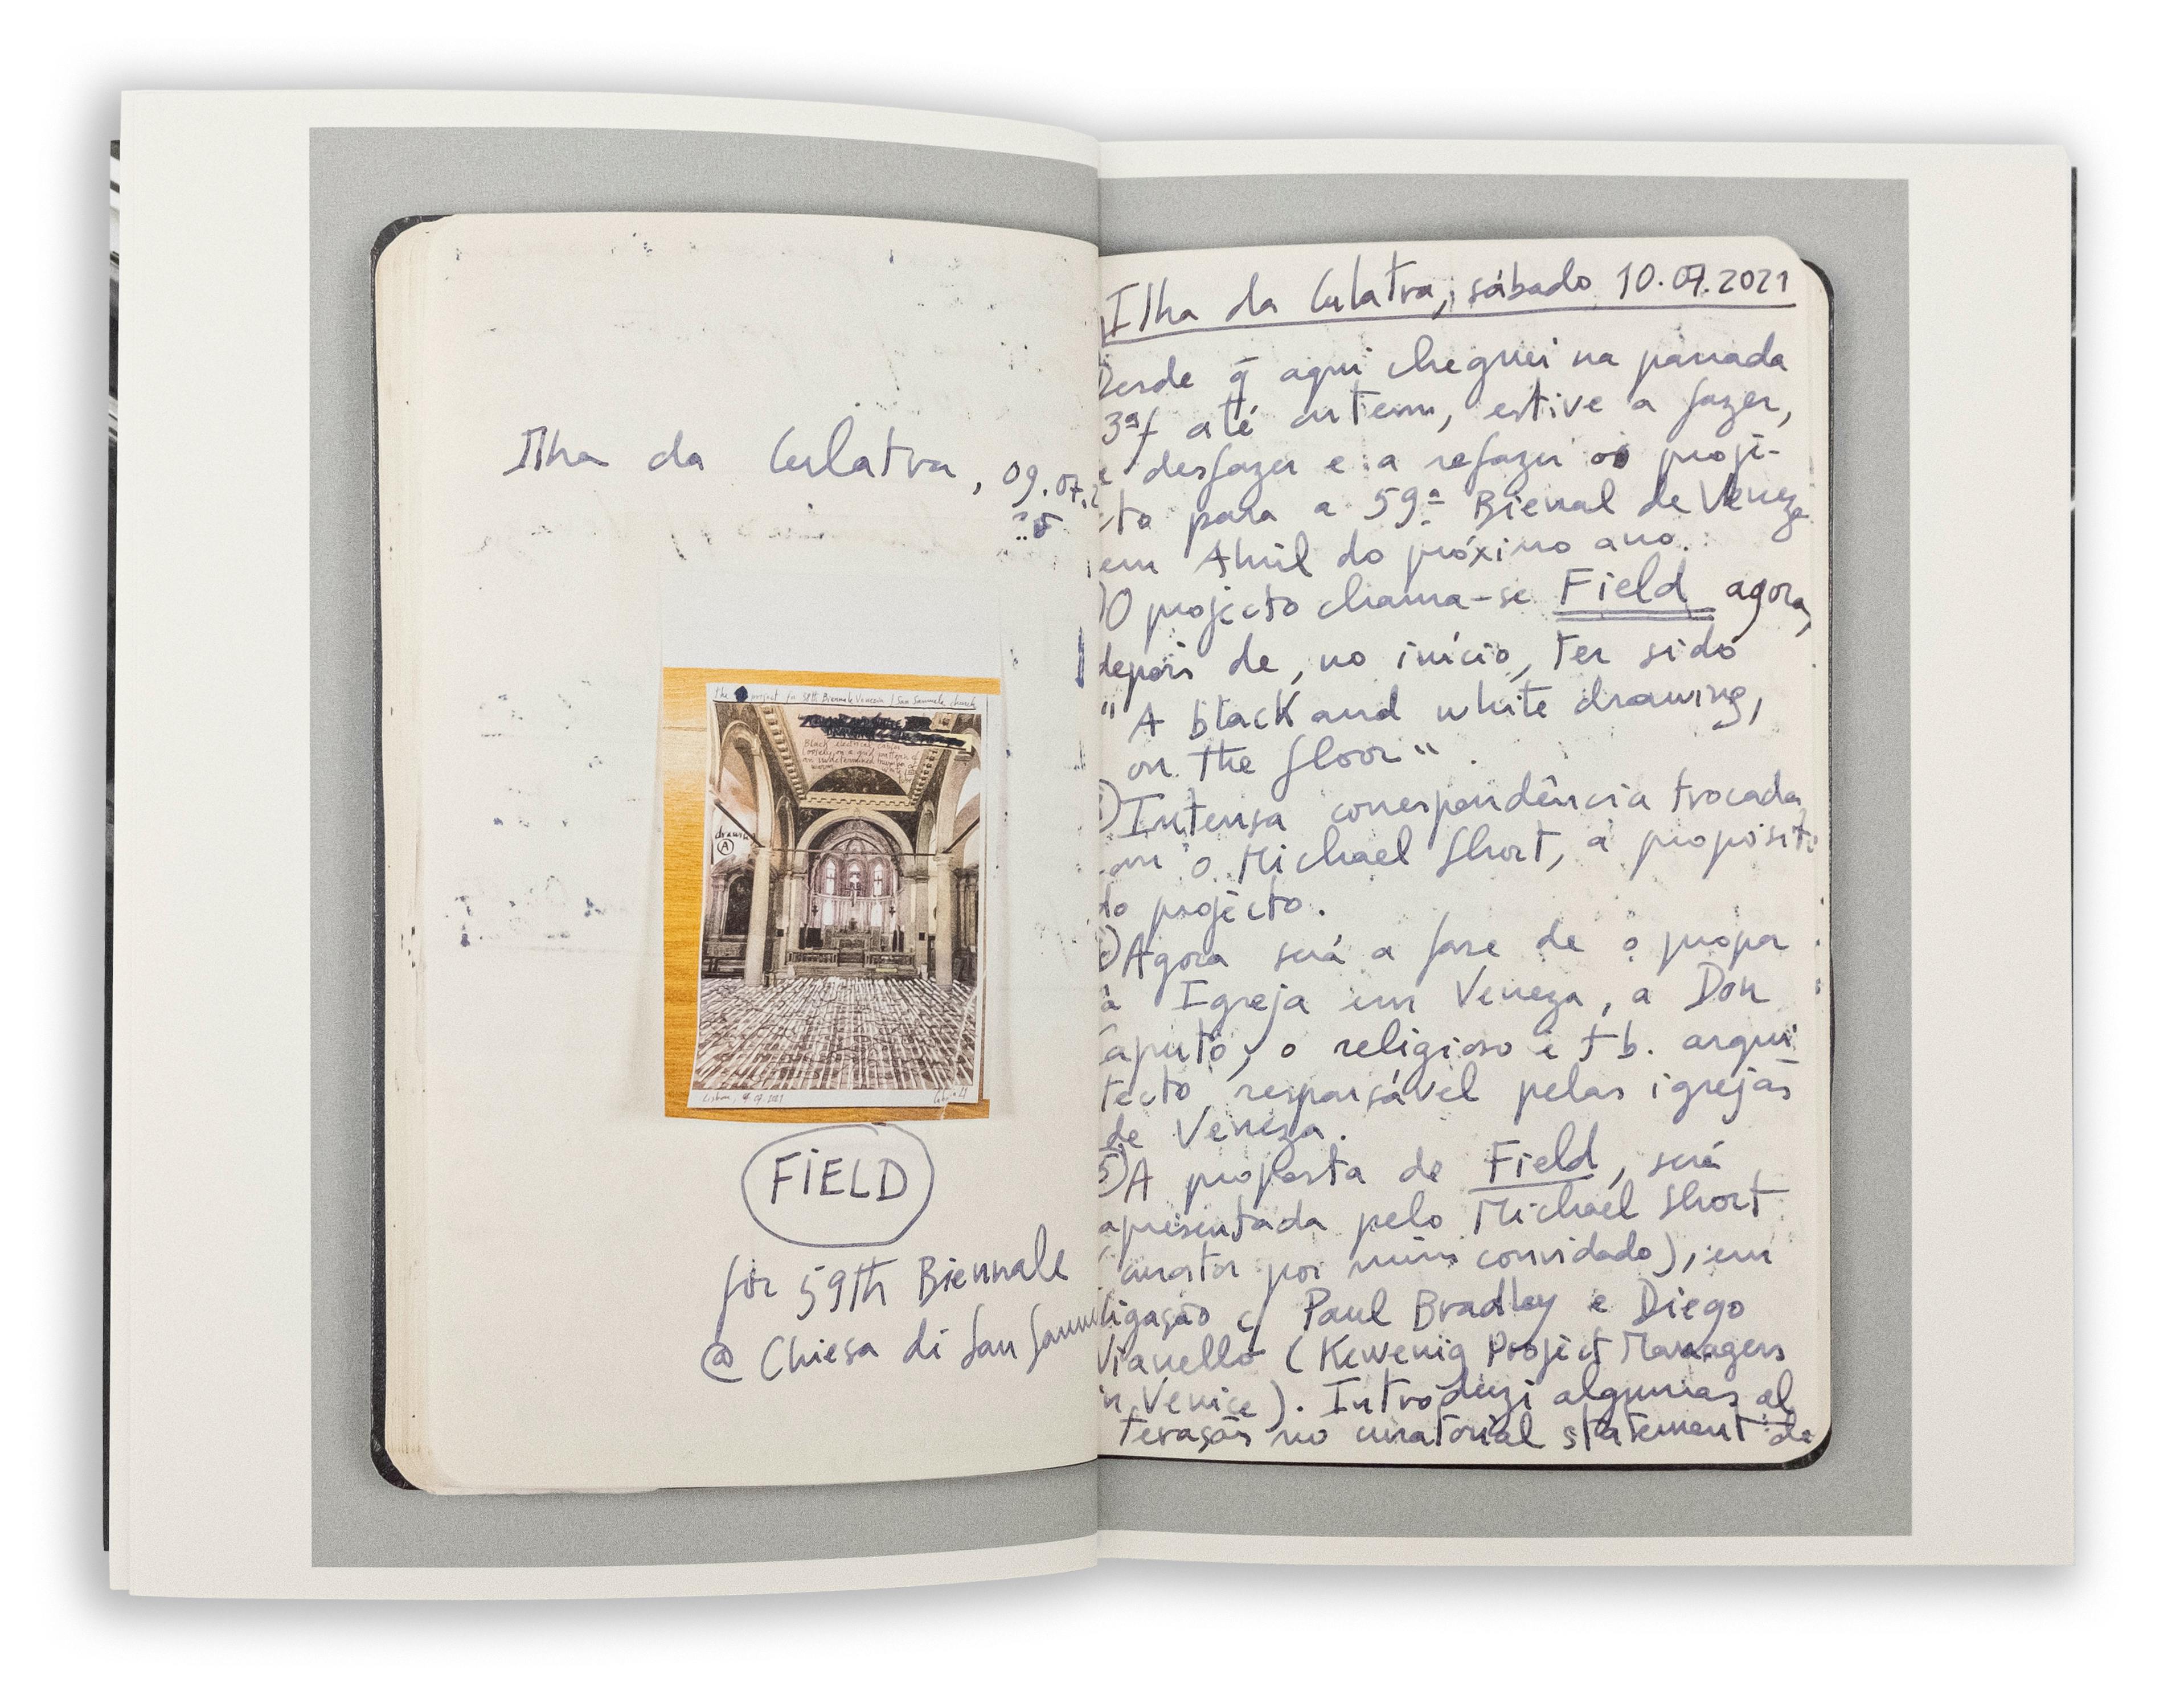 Ilha da Culatra, 09.07.2
the project for 59th Biennale Venezia / San Samuele church
Black electrical cables
loosely on a grid pattern of
an undetermined number of
drawing
A
Lisboa, 4.07.2021
FIELD
for 59th Biennale
@ Chiesa di San Samu
Ilha da Culatra, sábado 10.07.2021
Desde q̄ aqui cheguei na passada
3ªf até ontem, estive a fazer,
e desfazer e a refazer o projè-
cto para a 59ª Bienal de Veneza
em Abril do próximo ano.
O projècto chama-se Field agora,
depois de, no início, ter sido
"A black and white drawing,
on the floor".
Intensa correspondência trocada
com o Michael Short, a propósito
do projècto.
Agora será a fase de o propor
à Igreja em Veneza, a Don
Caputo, o religioso e tb. arqui-
tecto responsável pelas igrejas
de Veneza.
5) A proposta de Field, será
apresentada pelo Michael Short
(curator por mim convidado), em
ligação c/ Paul Bradley e Diego
Vianello (Kewenig Project Managers
in Venice). Introduzi algumas al
terações no curatorial statement de